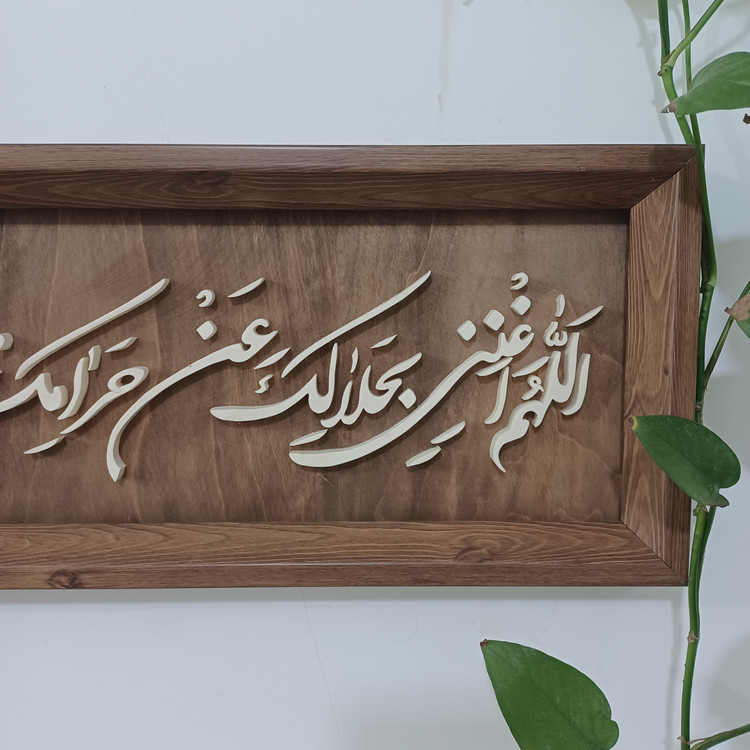 اَللّٰهُمَّ اغْنِنِی بِحَلالِکَ عَنْ حَرامِکَ